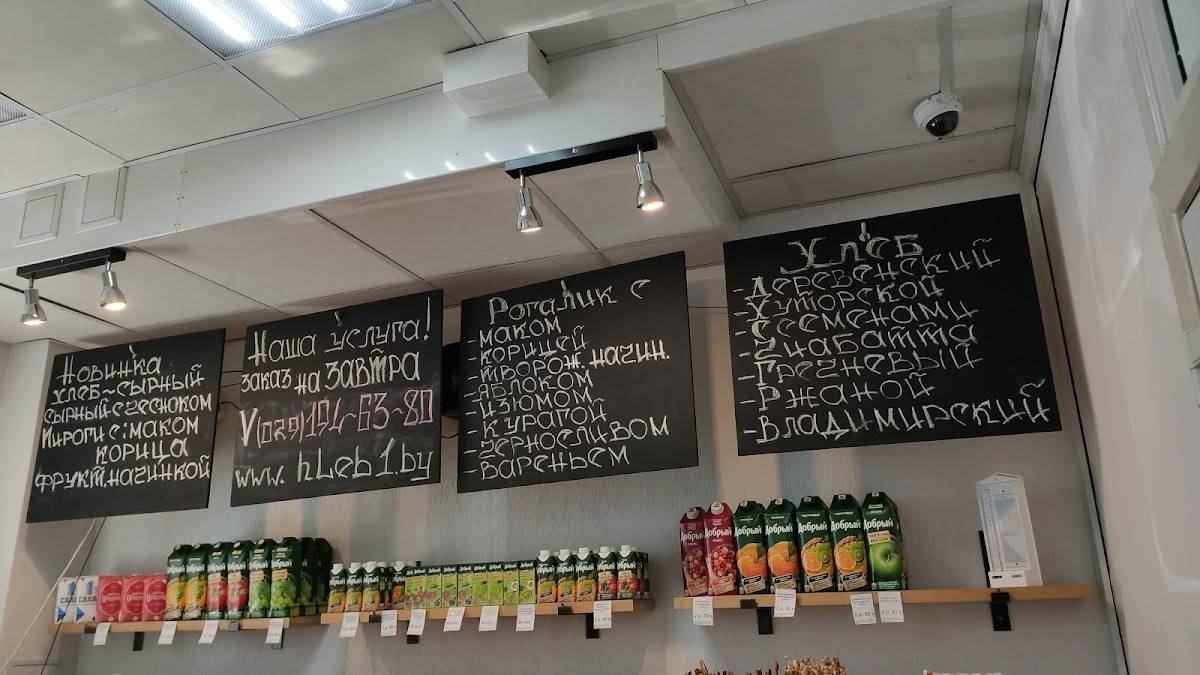 Новинка
Хлеб-сырный
сырный с чесноком
Пироги с: маком
корица
фрукт. начинкой
Наша услуга!
заказ на завтра
V (029) 194-63-80
www. hleb1.by
Рогалик с
-маком
-корицей
-творож. начин.
-яблоком
-изюмом
-курагой
-черносливом
-вареньем
Хлеб
-Деревенский
-Хуторской
-С семенами
-Чиабатта
-Гречневый
-Ржаной
-Владимирский
Добрый
Добрый
Добрый
Добрый
Добрый
Добрый
Добрый